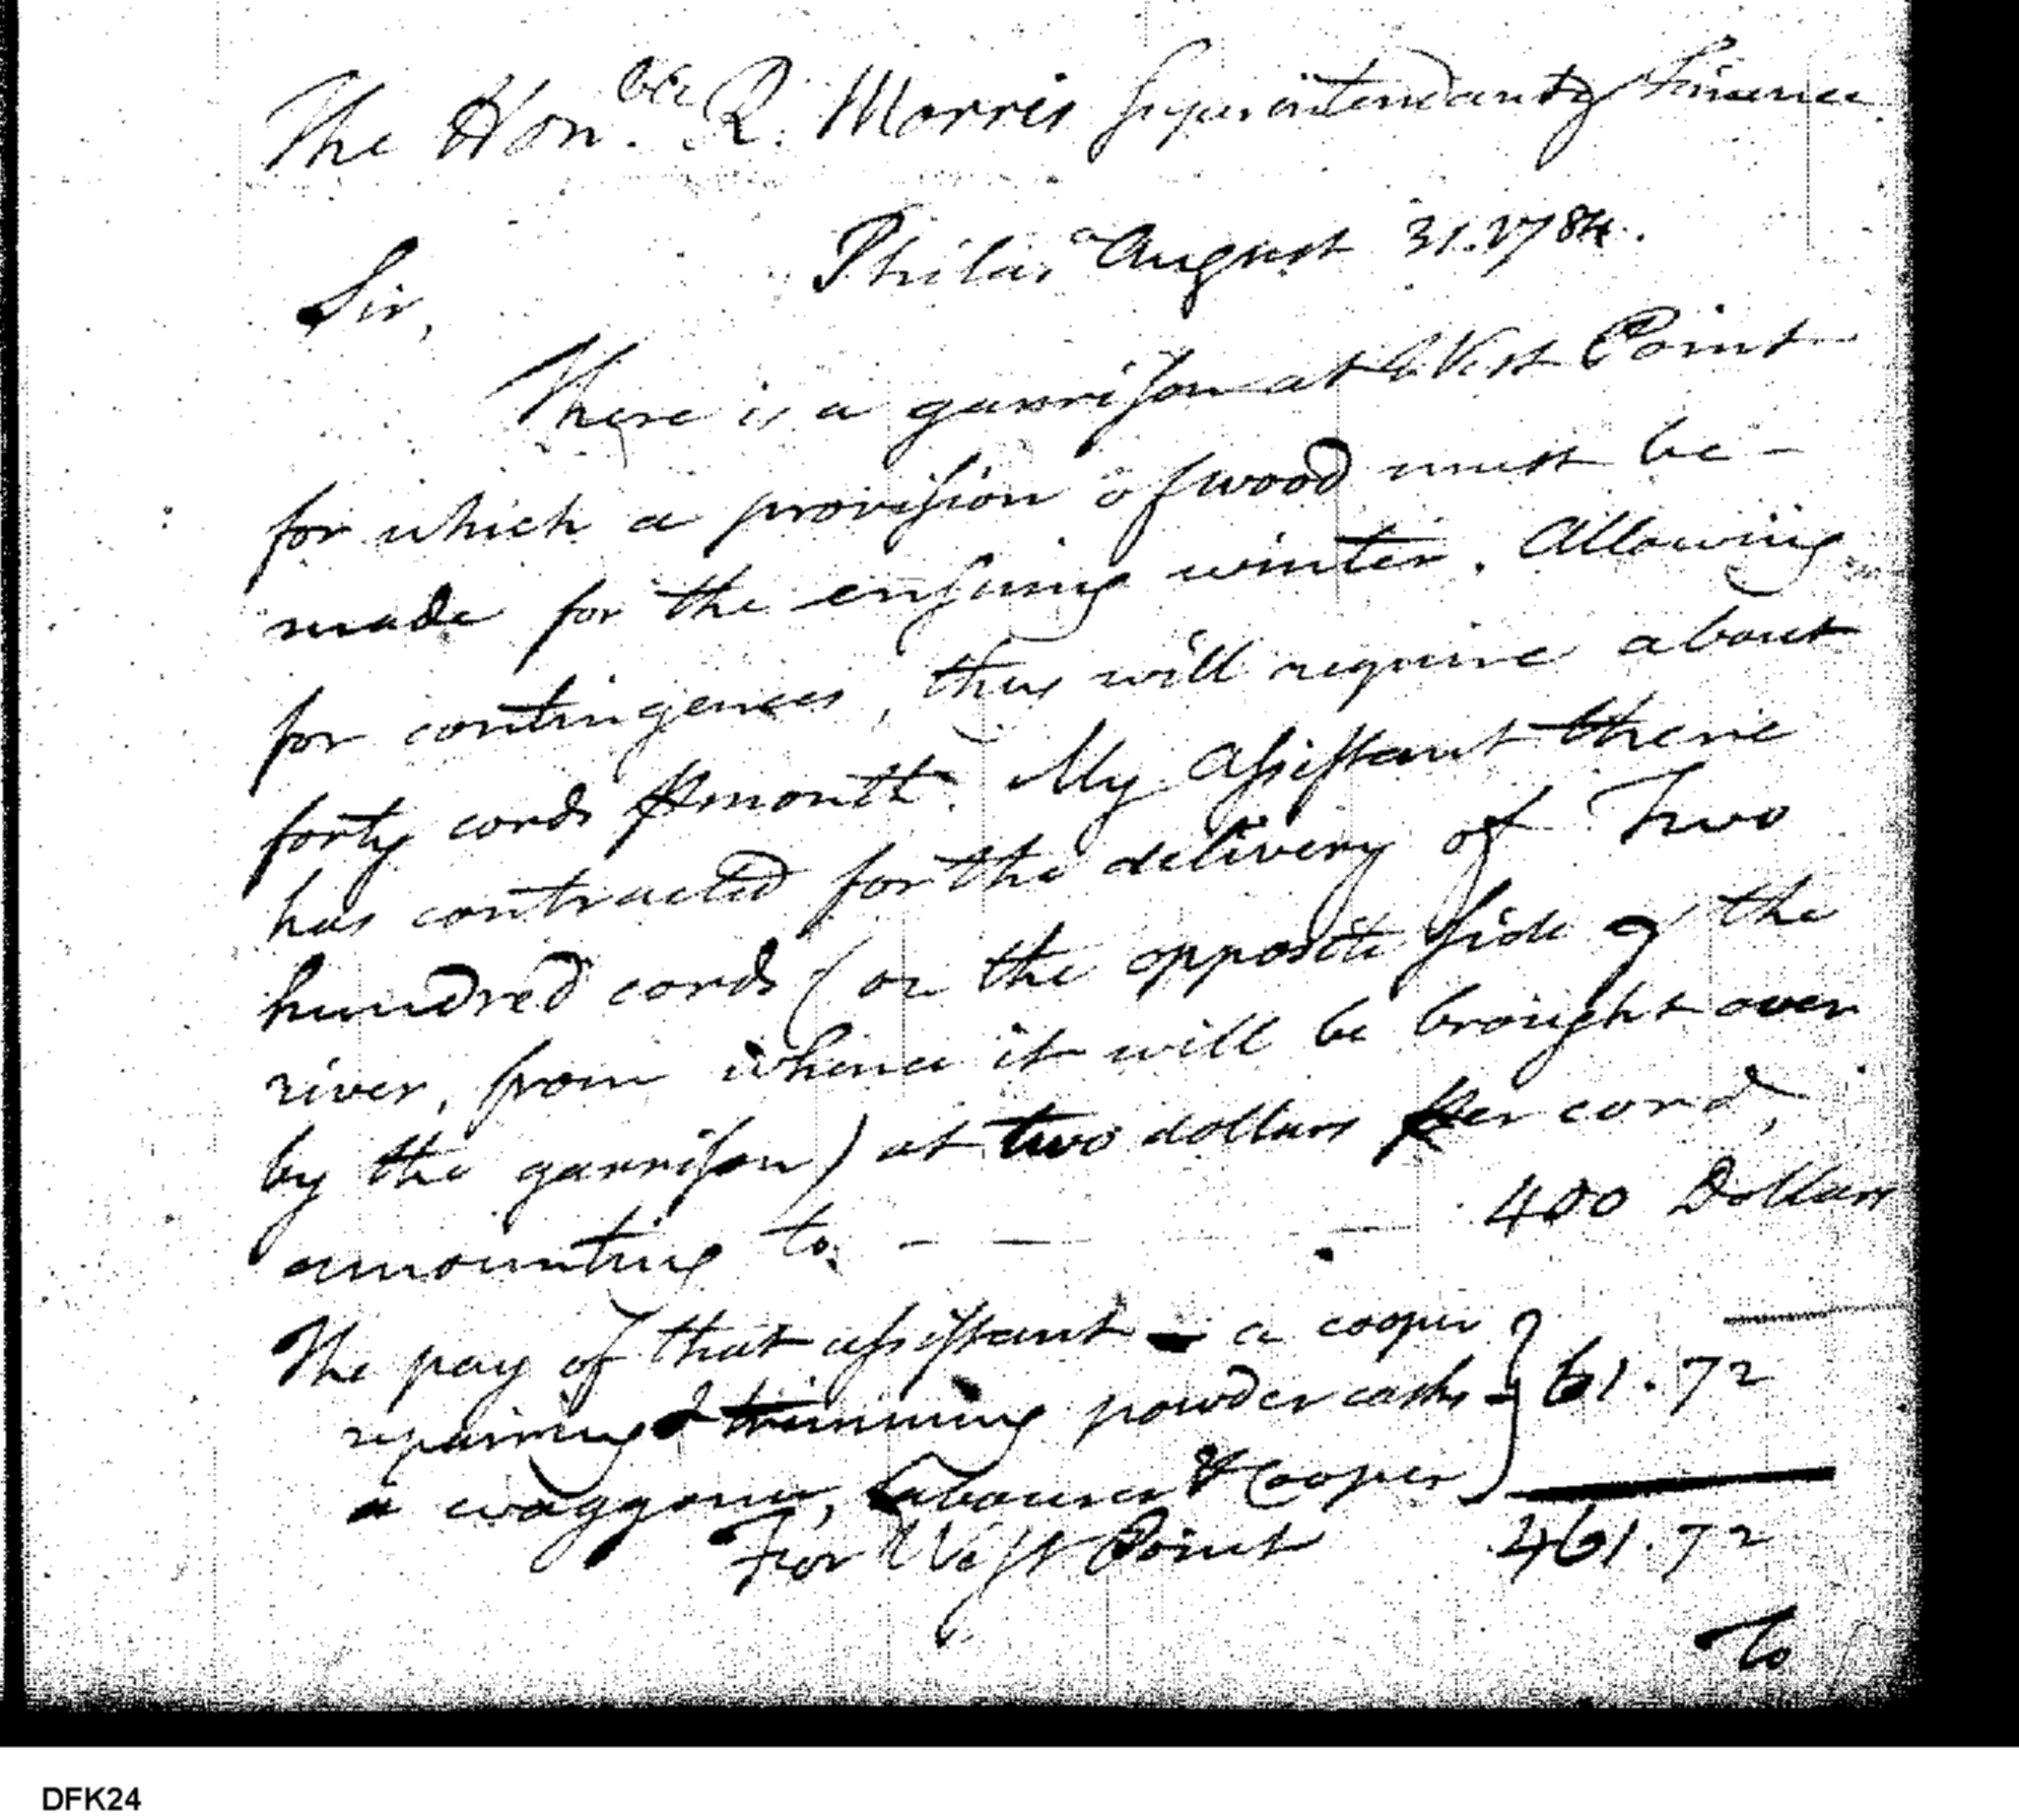 The Hon.ble R. Morris Superintendant of Finance
Phila.a August 31. 1784.
Sir,
There is a garrison at West Point
for which a provision of wood must be
made for the ensuing winter. Allowing
for contingences, they will require about
forty cords ⅌ month. My assistant there
has contracted for the delivery of Two
hundred cords (on the opposite side of the
river, from whence it will be brought over
by the garrison) at two dollars per cord,
amounting to - - - 400 Dollars
The pay of that assistant - a cooper
repairing & trimming powder casks - } 61.72
a waggoner, Labourer & Cooper
For West Point 461.72
To
DFK24